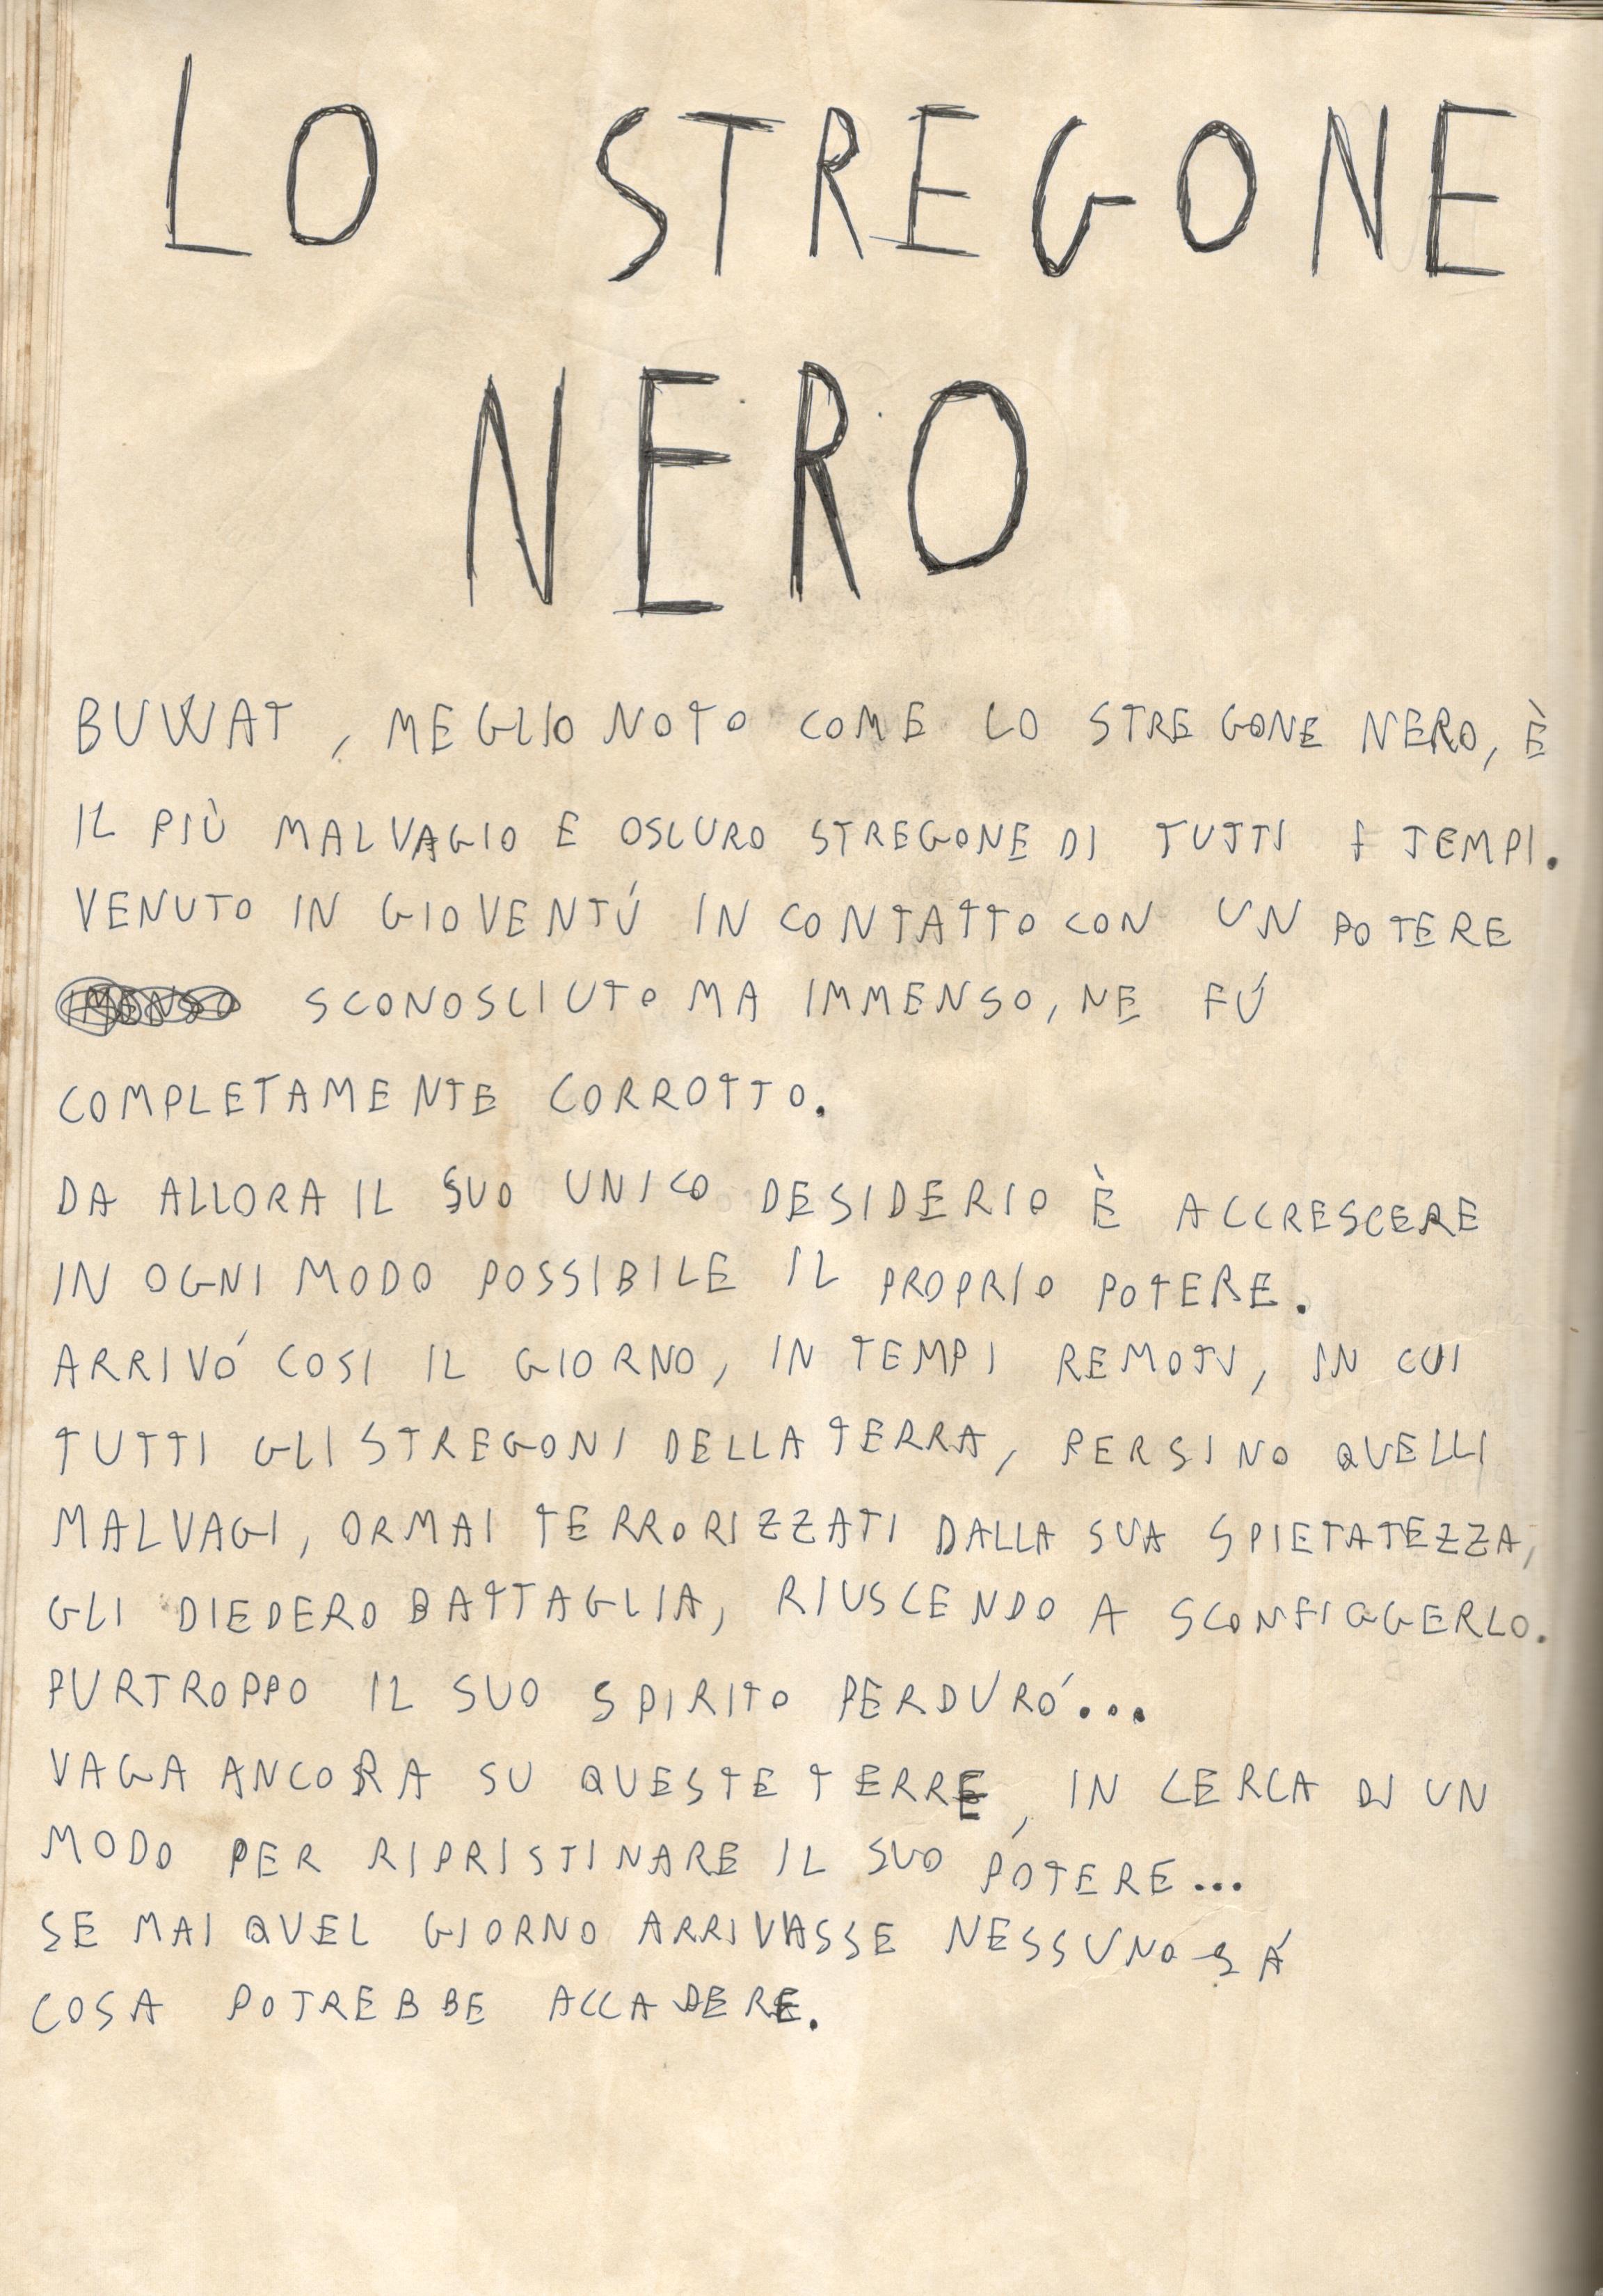 LO STREGONE
NERO
BUWAT, MEGLIO NOTO COME LO STREGONE NERO, È
IL PIÙ MALVAGIO E OSCURO STREGONE DI TUTTI I TEMPI.
VENUTO IN GIOVENTÚ IN CONTATTO CON UN POTERE
IMENSO SCONOSCIUTO MA IMMENSO, NE FÚ
COMPLETAMENTE CORROTTO.
DA ALLORA IL SUO UNICO DESIDERIO È ACCRESCERE
IN OGNI MODO POSSIBILE IL PROPRIO POTERE.
ARRIVÓ COSI IL GIORNO, IN TEMPI REMOTI, IN CUI
TUTTI GLI STREGONI DELLA TERRA, PERSINO QUELLI
MALVAGI, ORMAI TERRORIZZATI DALLA SUA SPIETATEZZA,
GLI DIEDERO BATTAGLIA, RIUSCENDO A SCONFIGGERLO.
PURTROPPO IL SUO SPIRITO PERDURÓ...
VAGA ANCORA SU QUESTE TERRE, IN CERCA DI UN
MODO PER RIPRISTINARE IL SUO POTERE...
SE MAI QUEL GIORNO ARRIVASSE NESSUNO SÁ
COSA POTREBBE ACCADERE.